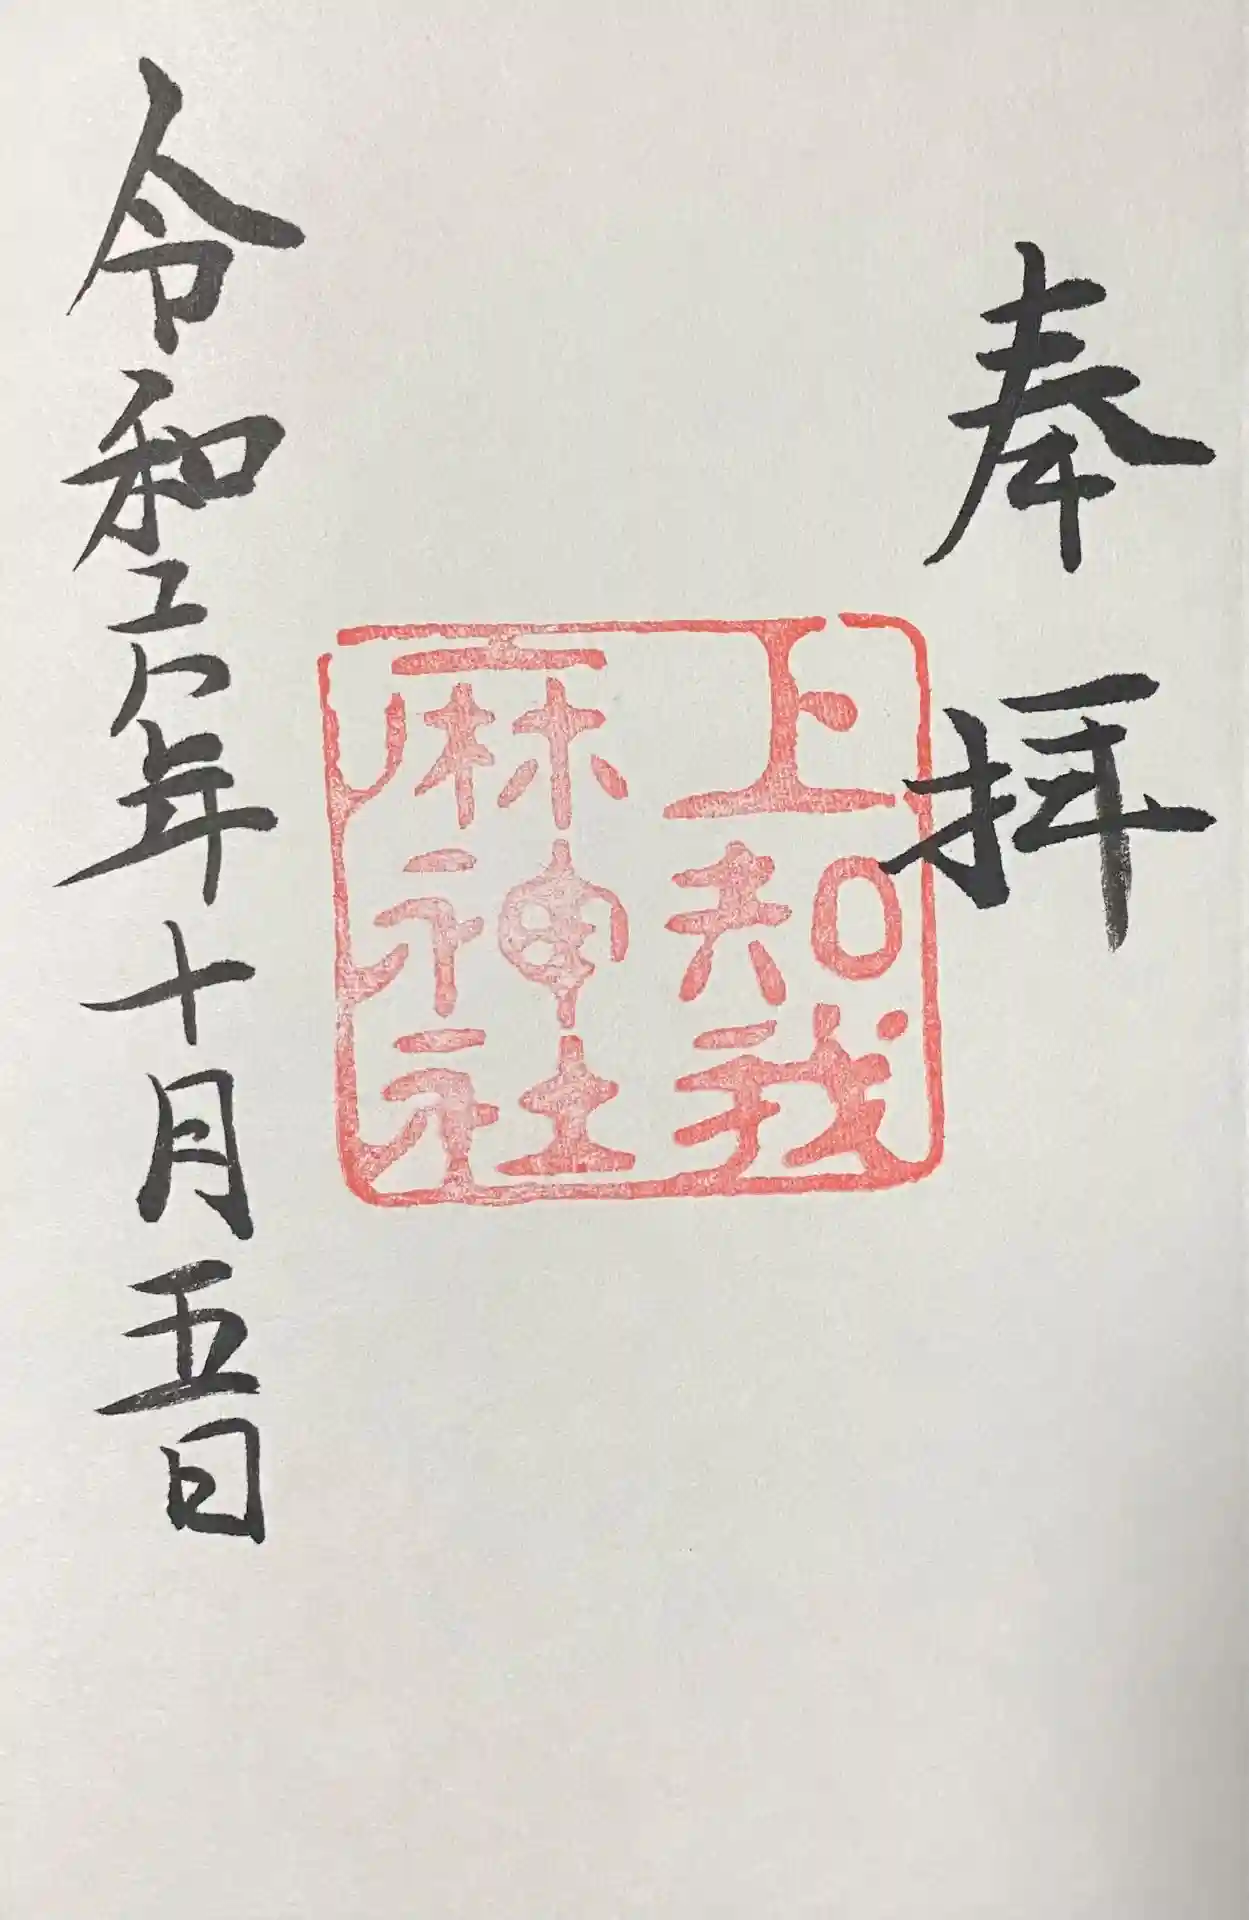 奉拝
上知我
麻神社
令和六年十月五日